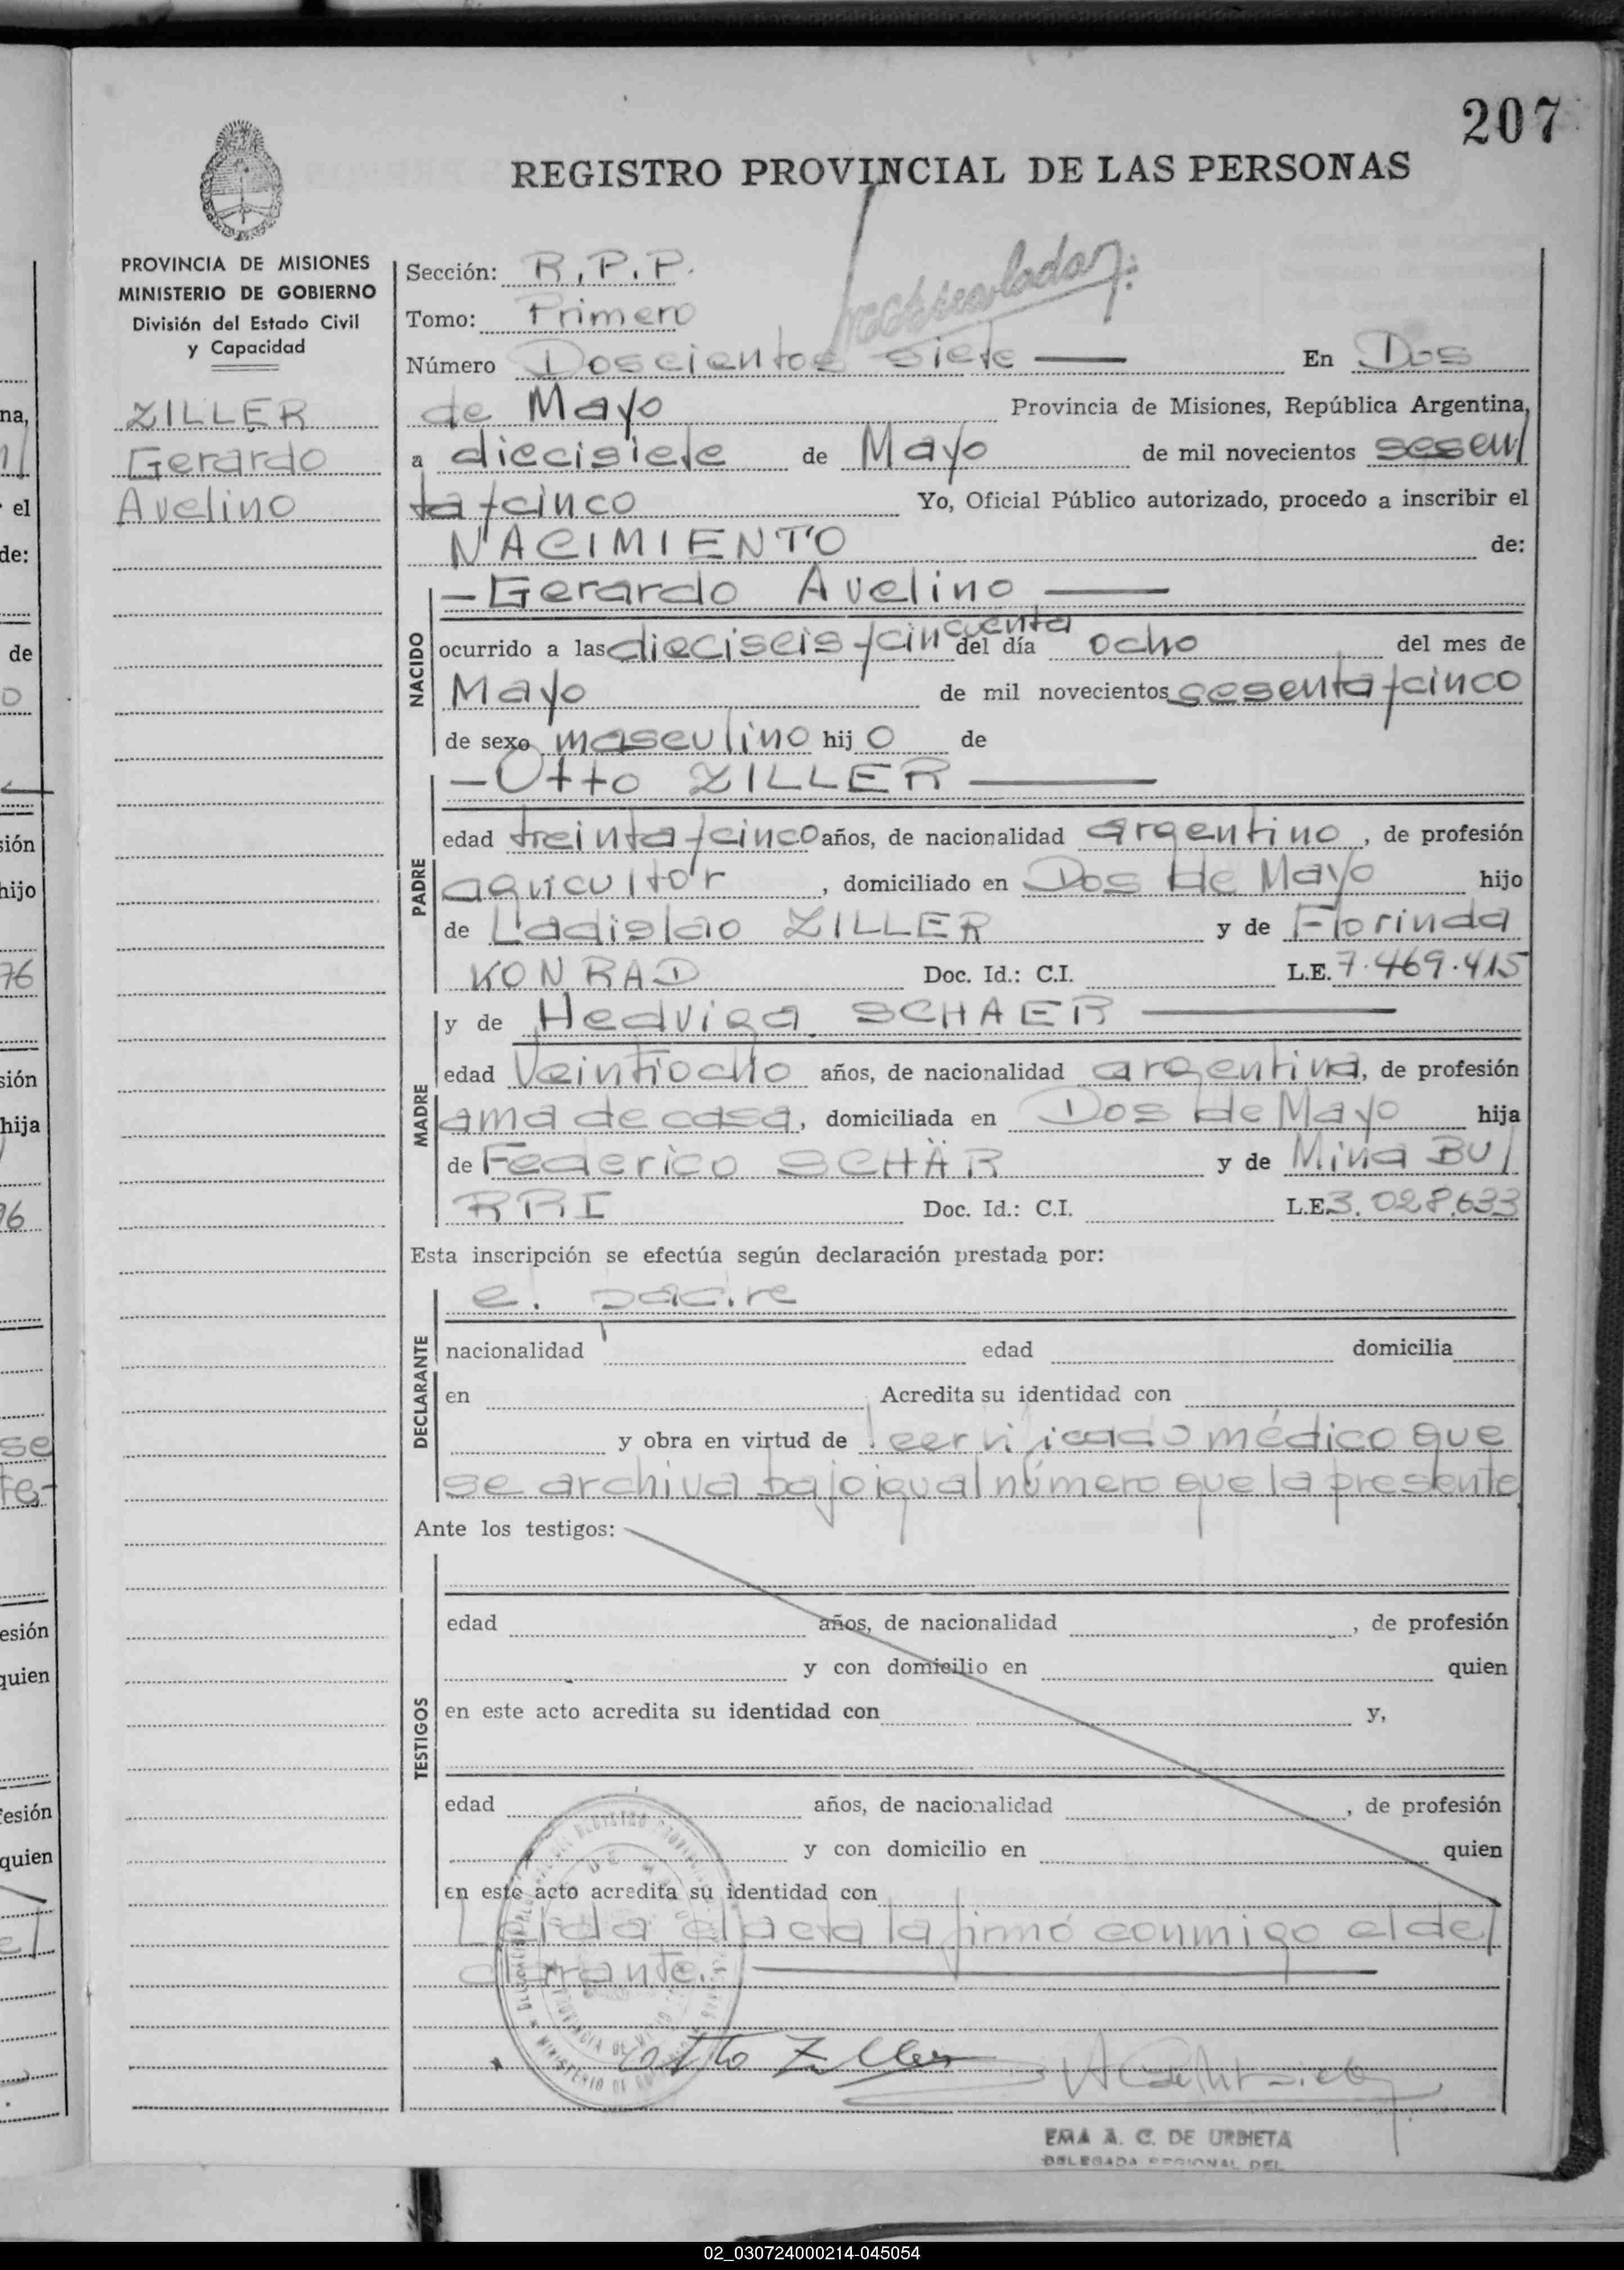 207
REGISTRO PROVINCIAL DE LAS PERSONAS
PROVINCIA DE MISIONES
MINISTERIO DE GOBIERNO
División del Estado Civil
y Capacidad
ZILLER
Gerardo
Avelino
Sección: R.P.P.
Tomo: Primero
Número Doscientos siete En Dos
de Mayo Provincia de Misiones, República Argentina,
a diecisiete de Mayo de mil novecientos sesen/
ta y cinco Yo, Oficial Público autorizado, procedo a inscribir el
NACIMIENTO de:
— Gerardo Avelino —
NACIDO
ocurrido a las dieciseis y cincuenta del día ocho del mes de
Mayo de mil novecientos sesenta y cinco
de sexo masculino hij o de
— Otto ZILLER —
PADRE
edad treinta y cinco años, de nacionalidad argentino, de profesión
agricultor, domiciliado en Dos de Mayo hijo
de Ladislao ZILLER y de Florinda
KONRAD Doc. Id.: C.I. L.E. 7.469.415
MADRE
y de Hedviga SCHAER —
edad Veintiocho años, de nacionalidad argentina, de profesión
ama de casa, domiciliada en Dos de Mayo hija
de Federico SCHÄR y de Mina BU/
RRI Doc. Id.: C.I. L.E. 3.028.633
Esta inscripción se efectúa según declaración prestada por:
DECLARANTE
el padre
nacionalidad edad domicilia
en Acredita su identidad con
y obra en virtud de certificado médico que
se archiva bajo igual número que la presente
Ante los testigos:
TESTIGOS
edad años, de nacionalidad , de profesión
y con domicilio en quien
en este acto acredita su identidad con y,
edad años, de nacionalidad , de profesión
y con domicilio en quien
en este acto acredita su identidad con
Leida el acta la firmó conmigo el de/
clarante.
Otto Ziller
EMA A. C. DE URBIETA
DELEGADA REGIONAL DEL
02_030724000214-045054